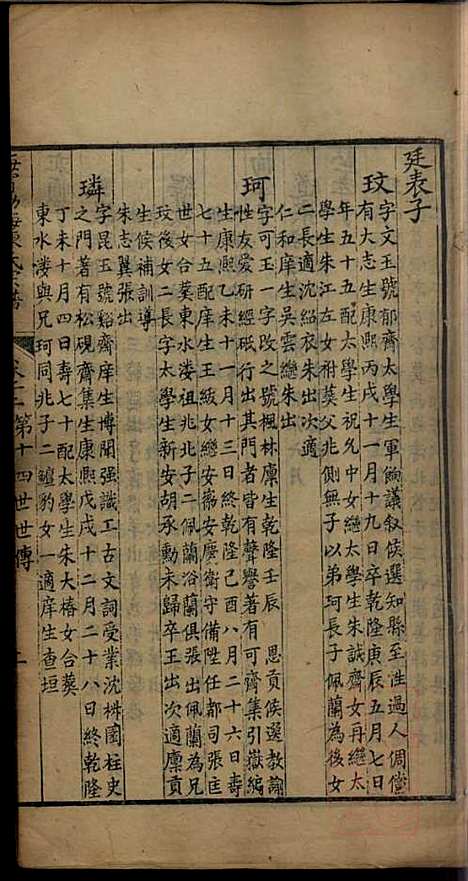 廷表子
玟
字文玉號郁齋太學生軍餉議叙候選知縣至性過人倜儻
有大志生康熙丙戌十一月十九日卒乾隆庚辰五月七日
年五十五配太學生祝允中女繼太學生朱誠齋女再繼太
學生朱江左女祔葵父兆側無子以弟珂長子佩蘭為後女
二長適沈紹衣朱出次適
仁和庠生吳雲繼朱出
珂
字可王一字改之號楓林廩生乾隆壬辰 恩貢候選教諭
性友愛研經砥行出其門者皆有聲譽著有可齋集引嶽編
生康熙乙未十一月十三日終乾隆己酉八月二十六日壽
七十五配庠生王紱女繼安徽安廣衛守備陞任都司張匡
世女合葵東水漊祖兆北子二佩蘭浴蘭俱張出佩蘭為兄
玟後女二長字太學生新安胡承勳未歸卒王出次適廩貢
生候補訓導
朱志翼張出
璘
字昆玉號谿齋庠生博聞强識工古文詞受業沈椒園柱史
之門著有松硯齋集生康熙戊戌十二月二十八日終乾隆
丁未十月四日壽七十配太學生朱大椿女合葵
東水漊與兄珂同兆子二鱣豹女一適庠生查垣
第十四世世傳